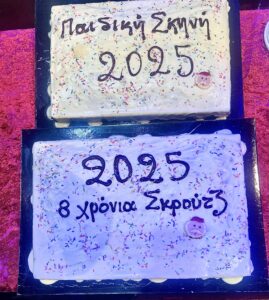 Παιδική Σκηνή
2025
2025
8 χρόνια Σκρούτζ